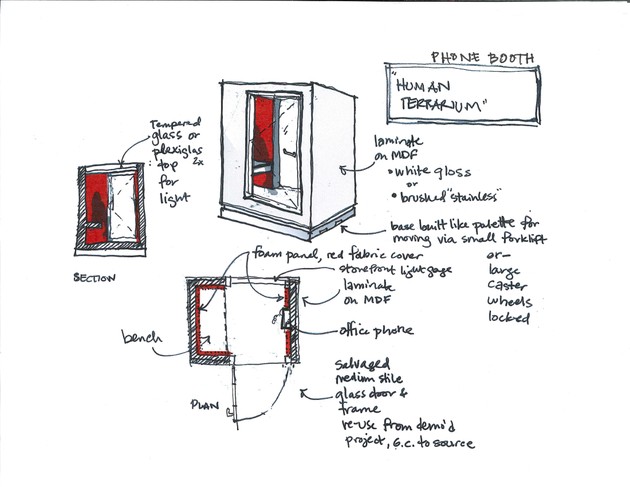 PHONE BOOTH
"HUMAN
TERRARIUM"
Tempered
glass or
plexiglas
: top 2x
for
light
laminate
on MDF
• white gloss
or
• brushed "stainless"
base built like palette for
moving via small forklift
-or-
large
caster
wheels
locked
SECTION
foam panel, red fabric cover
storefront light gage
laminate
on MDF
office phone
bench
salvaged
medium stile
glass door &
frame
re-use from demo'd
project, G.C. to source
PLAN